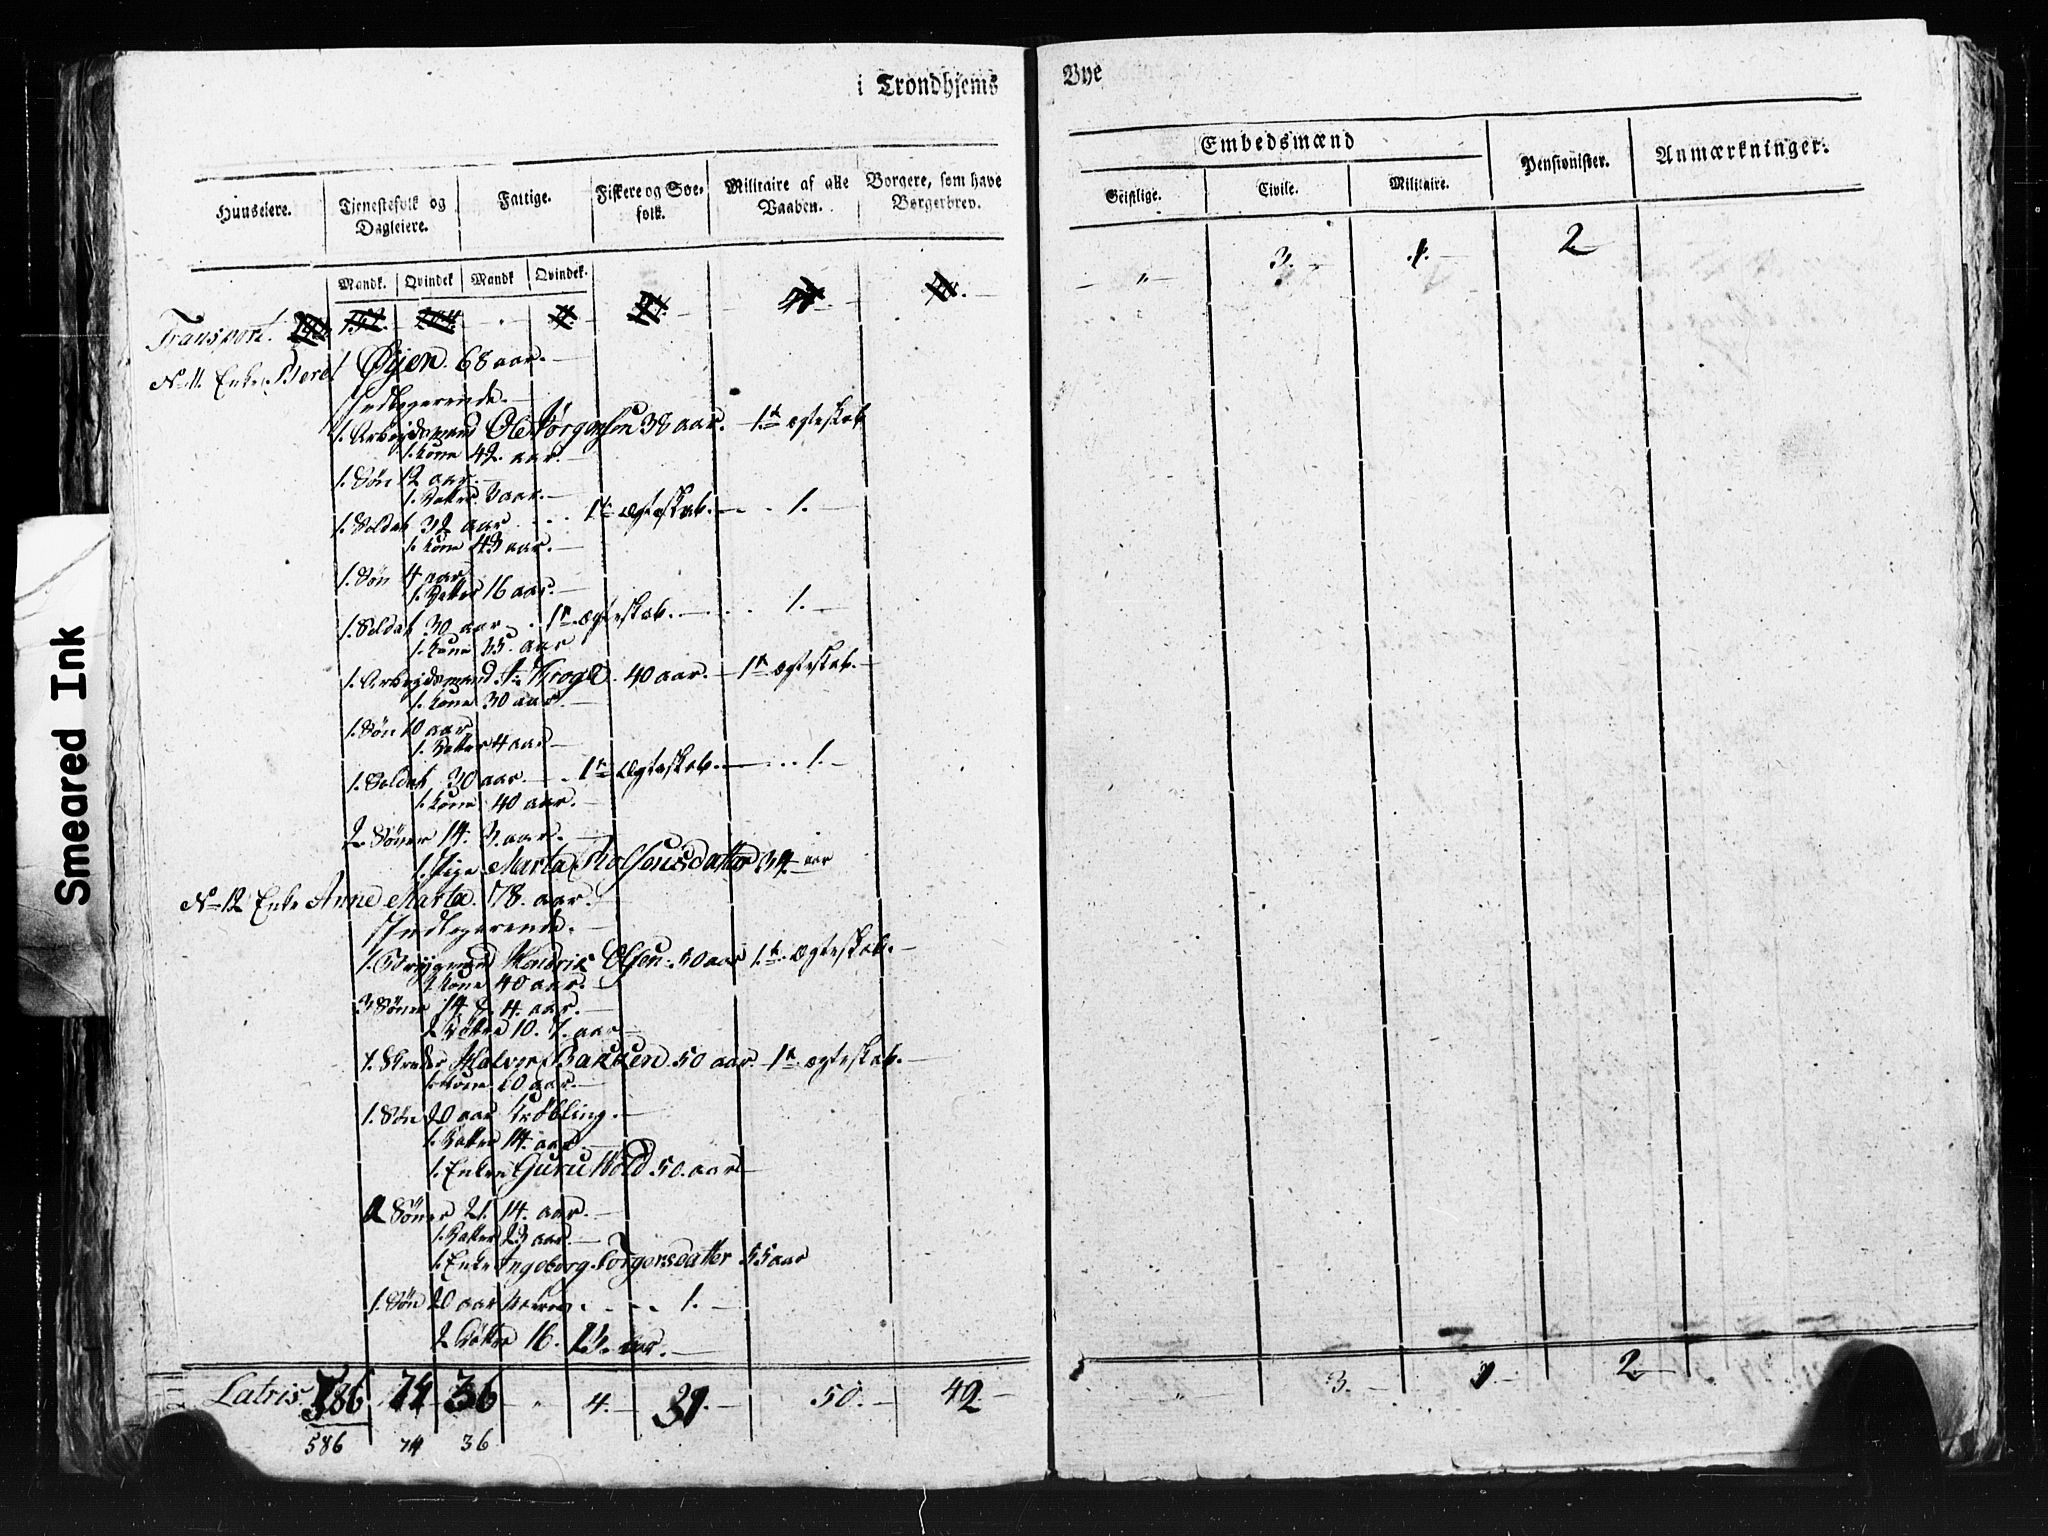 i Trondhjems Bye
Embedsmænd
Huuseiere. Tjenestefolk og Dagleiere. Fattige. Fiskere og Søefolk. Militaire af alle Vaaben. Borgere, som have Borgerbrev. Geistlige. Civile. Militaire. Pensionister. Anmærkninger.
Mandk. Qvindek. Mandk. Qvindek.
Transport. " 3. 1. 2
No 11. Enke Beret Øyen. 68 aar.
Indlogerende.
1. Arbeydsmand Ole Jørgensen 38 aar. 1te ægteskab
1. kone 42. aar.
1. Søn 12 aar.
1. Datter 3 aar.
1. Soldat 32 aar 1te ægteskab. 1.
1. kone 43 aar.
1. Søn 4 aar
1. Datter 16 aar.
1. Soldat 30 aar 1te ægteskab. 1.
1. kone 35. aar
1. Arbeydsmand 40 aar. 1te ægteskab.
1. kone 30 aar.
1. Søn 10 aar
1. Datter 4 aar
1. Soldat 30 aar. 1te ægteskab. 1.
1. kone 40 aar.
2 Sönner 14. 3. aar.
1. Pige Marta 34 aar
No 12 Enke Anne Marta. 78. aar.
Indlogerende.
1. Hendrik Olsen. 50 aar 1te ægteskab.
1 kone 40 aar.
3 Sönner 14 8. 4. aar.
2 Døttre 10. 7. aar
1. Halvor Bakken. 50 aar. 1te ægteskab.
1. kone 60 aar.
1. Søn 20 aar Krøbling.
1. Datter 14. aar.
1. Enken Guru 50. aar
2 Sönner 21. 14. aar.
1. Datter 23 aar.
1. Enke Ingeborg Torgersdatter 55 aar
1. Søn 20 aar 1.
2 Døttre 16. 13. aar.
Latris 586 74 36 " 4. 31. 50. 42 " 3. 1. 2.
586 74 36
Smeared Ink